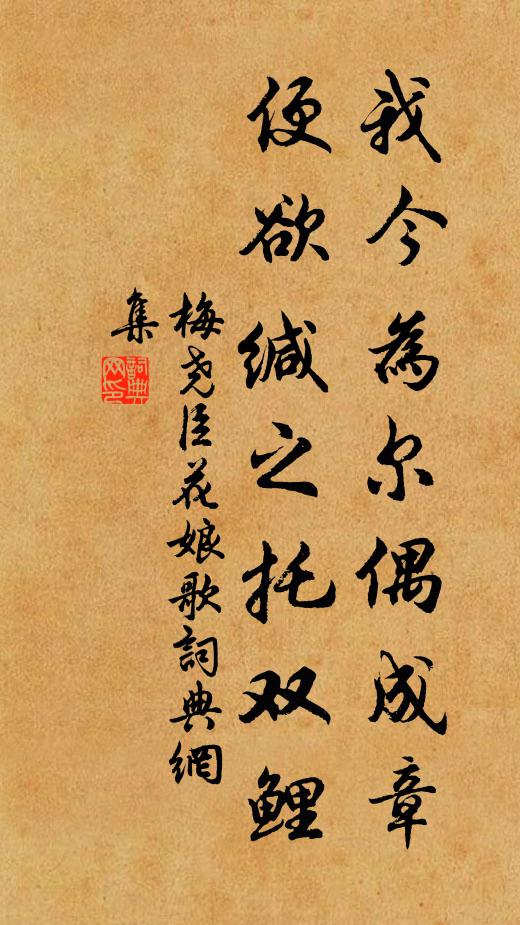 我今為尔偶成章
便欲缄之托双鲤
梅尧臣花娘歌詞典網
集
詞典网印